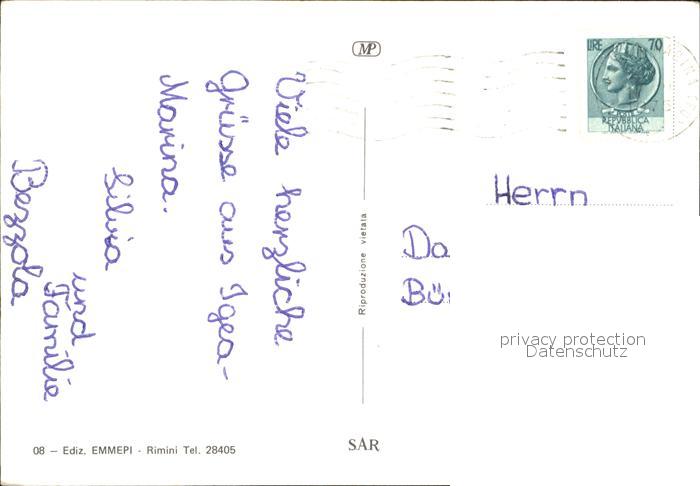 MP
LIRE 70
POSTE
REPUBBLICA
ITALIANA
Viele herzliche
Grüsse aus Igea-
Marina.
Silvia
und
Familie
Bezzola
Riproduzione vietata
Herrn
Da
Bü
privacy protection
Datenschutz
08 – Ediz. EMMEPI - Rimini Tel. 28405
SAR